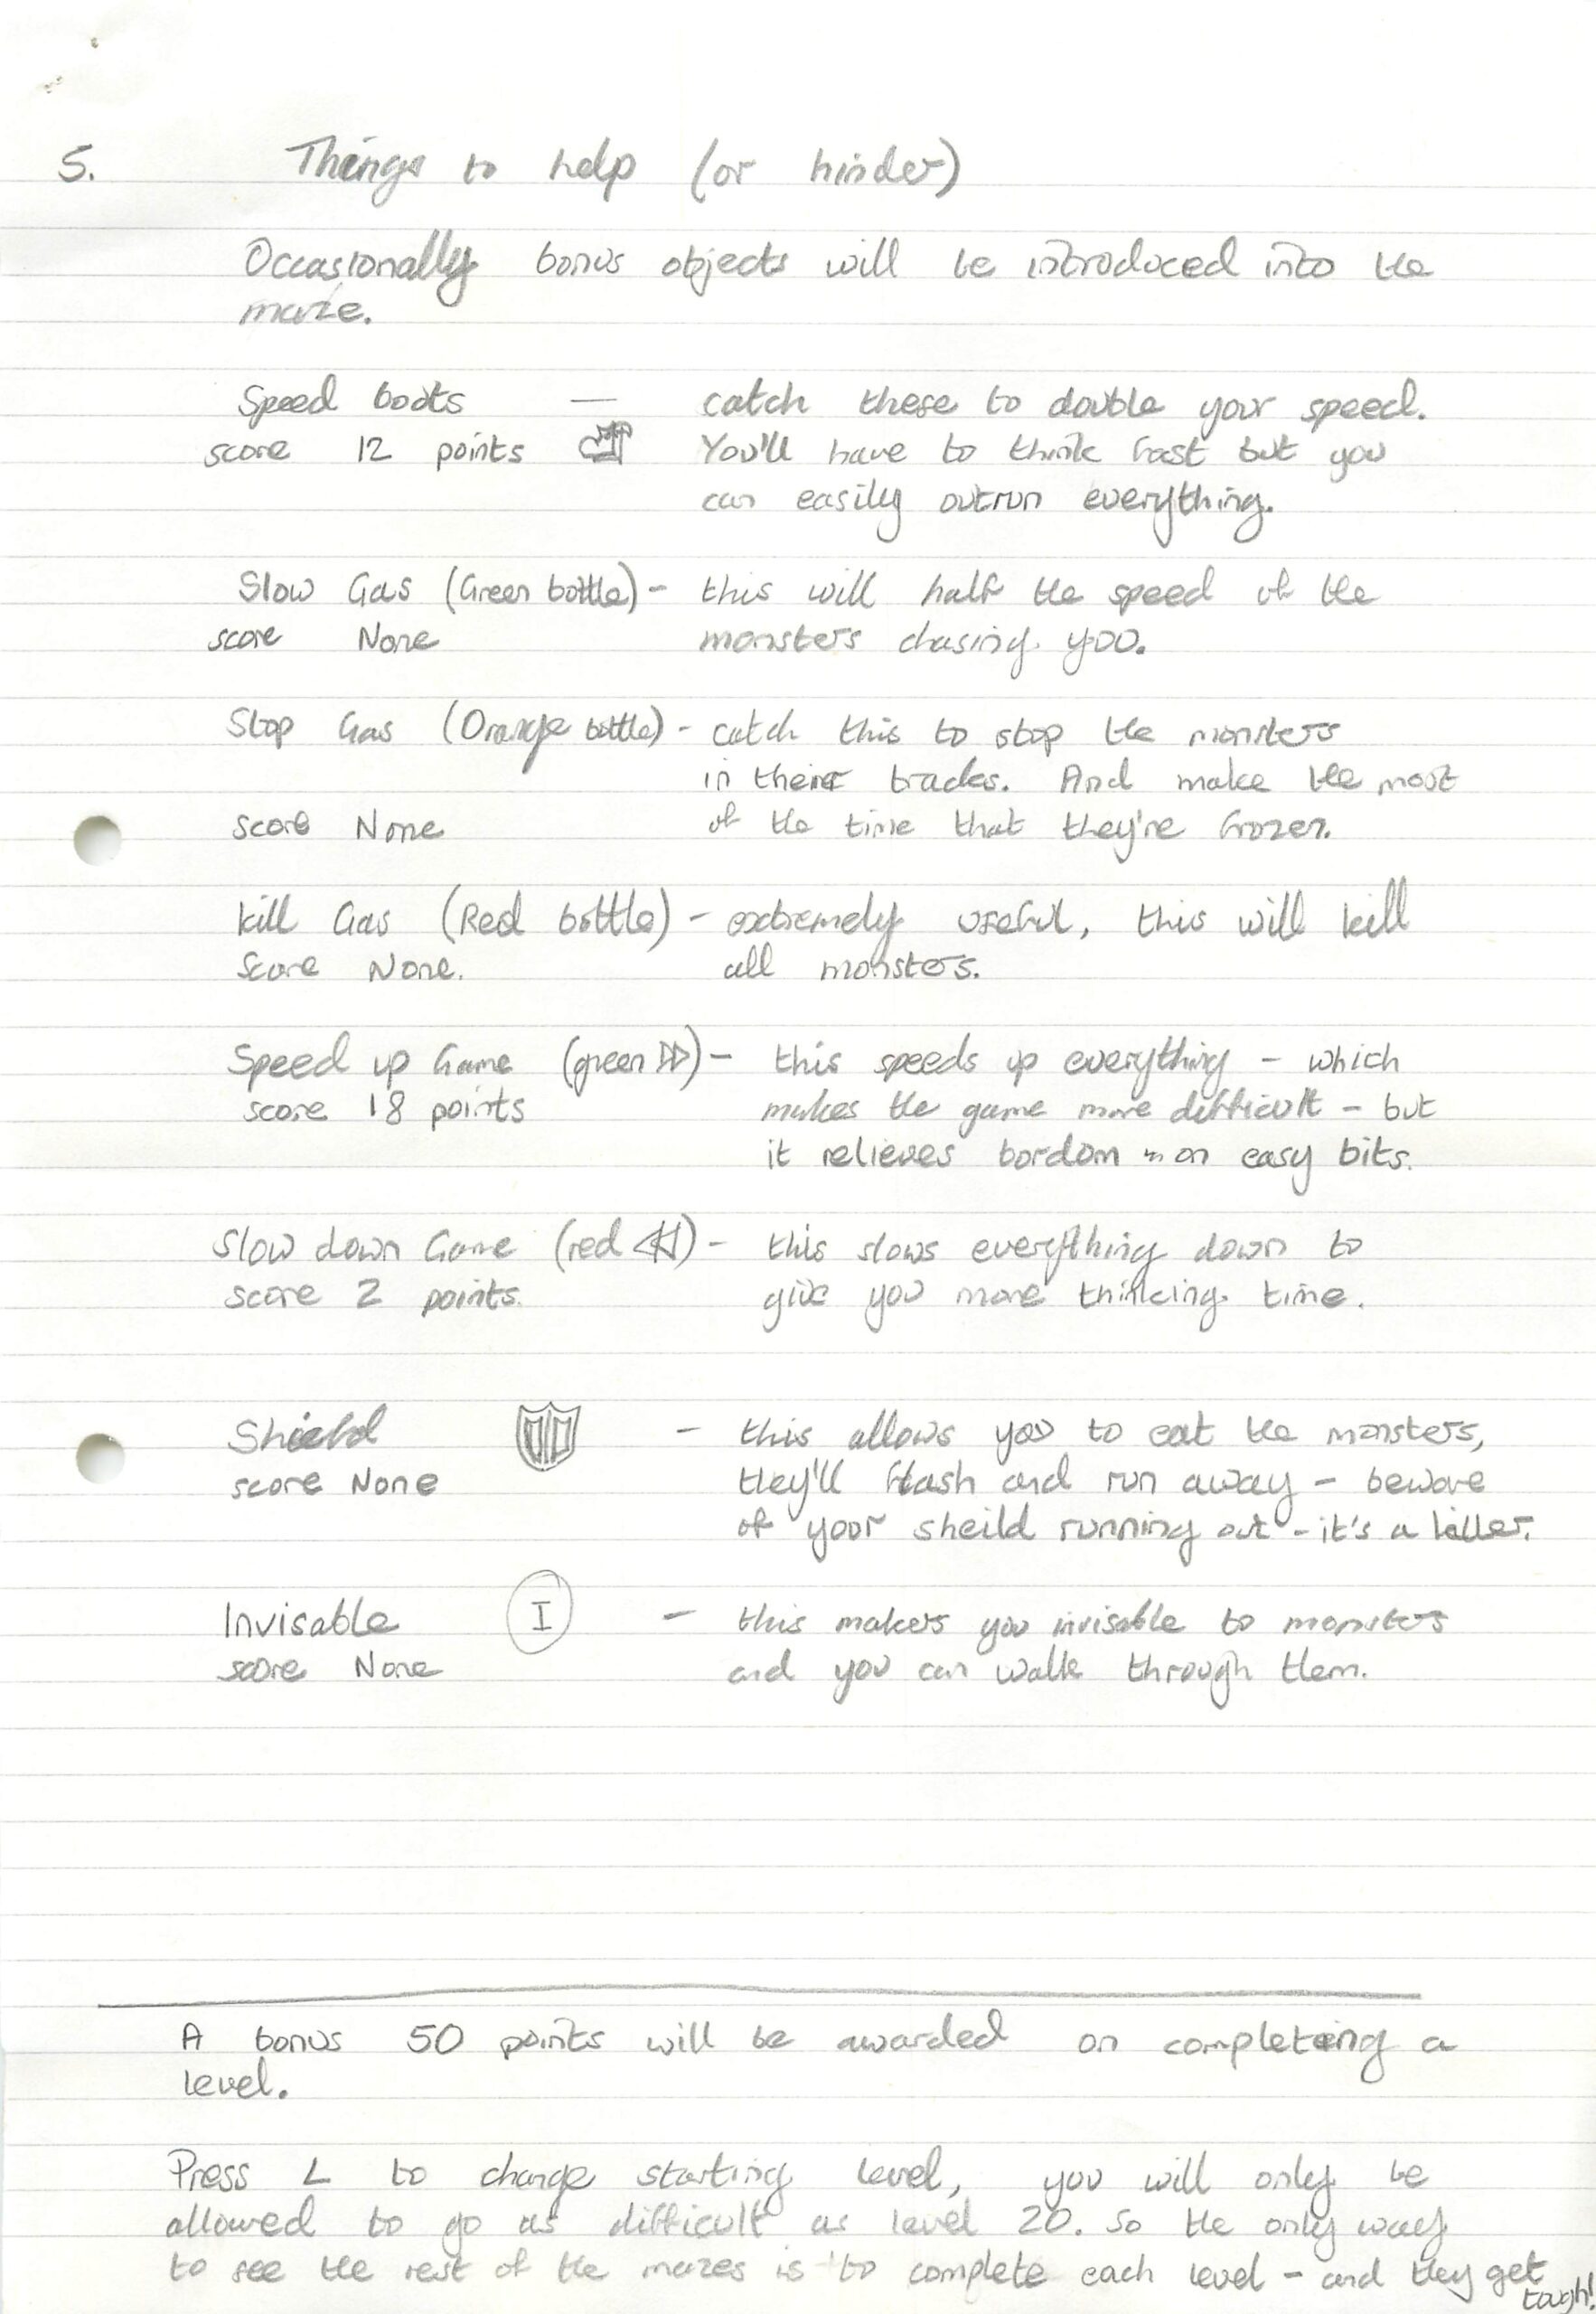 5. Things to help (or hinder)
Occasionally bonus objects will be introduced into the
maze.
Speed boots — catch these to double your speed.
score 12 points You'll have to think fast but you
can easily outrun everything.
Slow Gas (Green bottle) - this will half the speed of the
score None monsters chasing you.
Stop Gas (Orange bottle) - catch this to stop the monsters
in their tracks. And make the most
score None of the time that they're frozen.
Kill Gas (Red bottle) - extremely useful, this will kill
Score None. all monsters.
Speed up Game (green ▷▷) - this speeds up everything - which
score 18 points makes the game more difficult - but
it relieves bordom on easy bits.
Slow down Game (red ◁◁) - this slows everything down to
score 2 points. give you more thinking time.
Shield - this allows you to eat the monsters,
score None they'll flash and run away - beware
of your sheild running out - it's a killer.
Invisable I - this makes you invisable to monsters
score None and you can walk through them.
A bonus 50 points will be awarded on completing a
level.
Press L to change starting level, you will only be
allowed to go as difficult as level 20. So the only way
to see the rest of the mazes is to complete each level - and they get
tough!